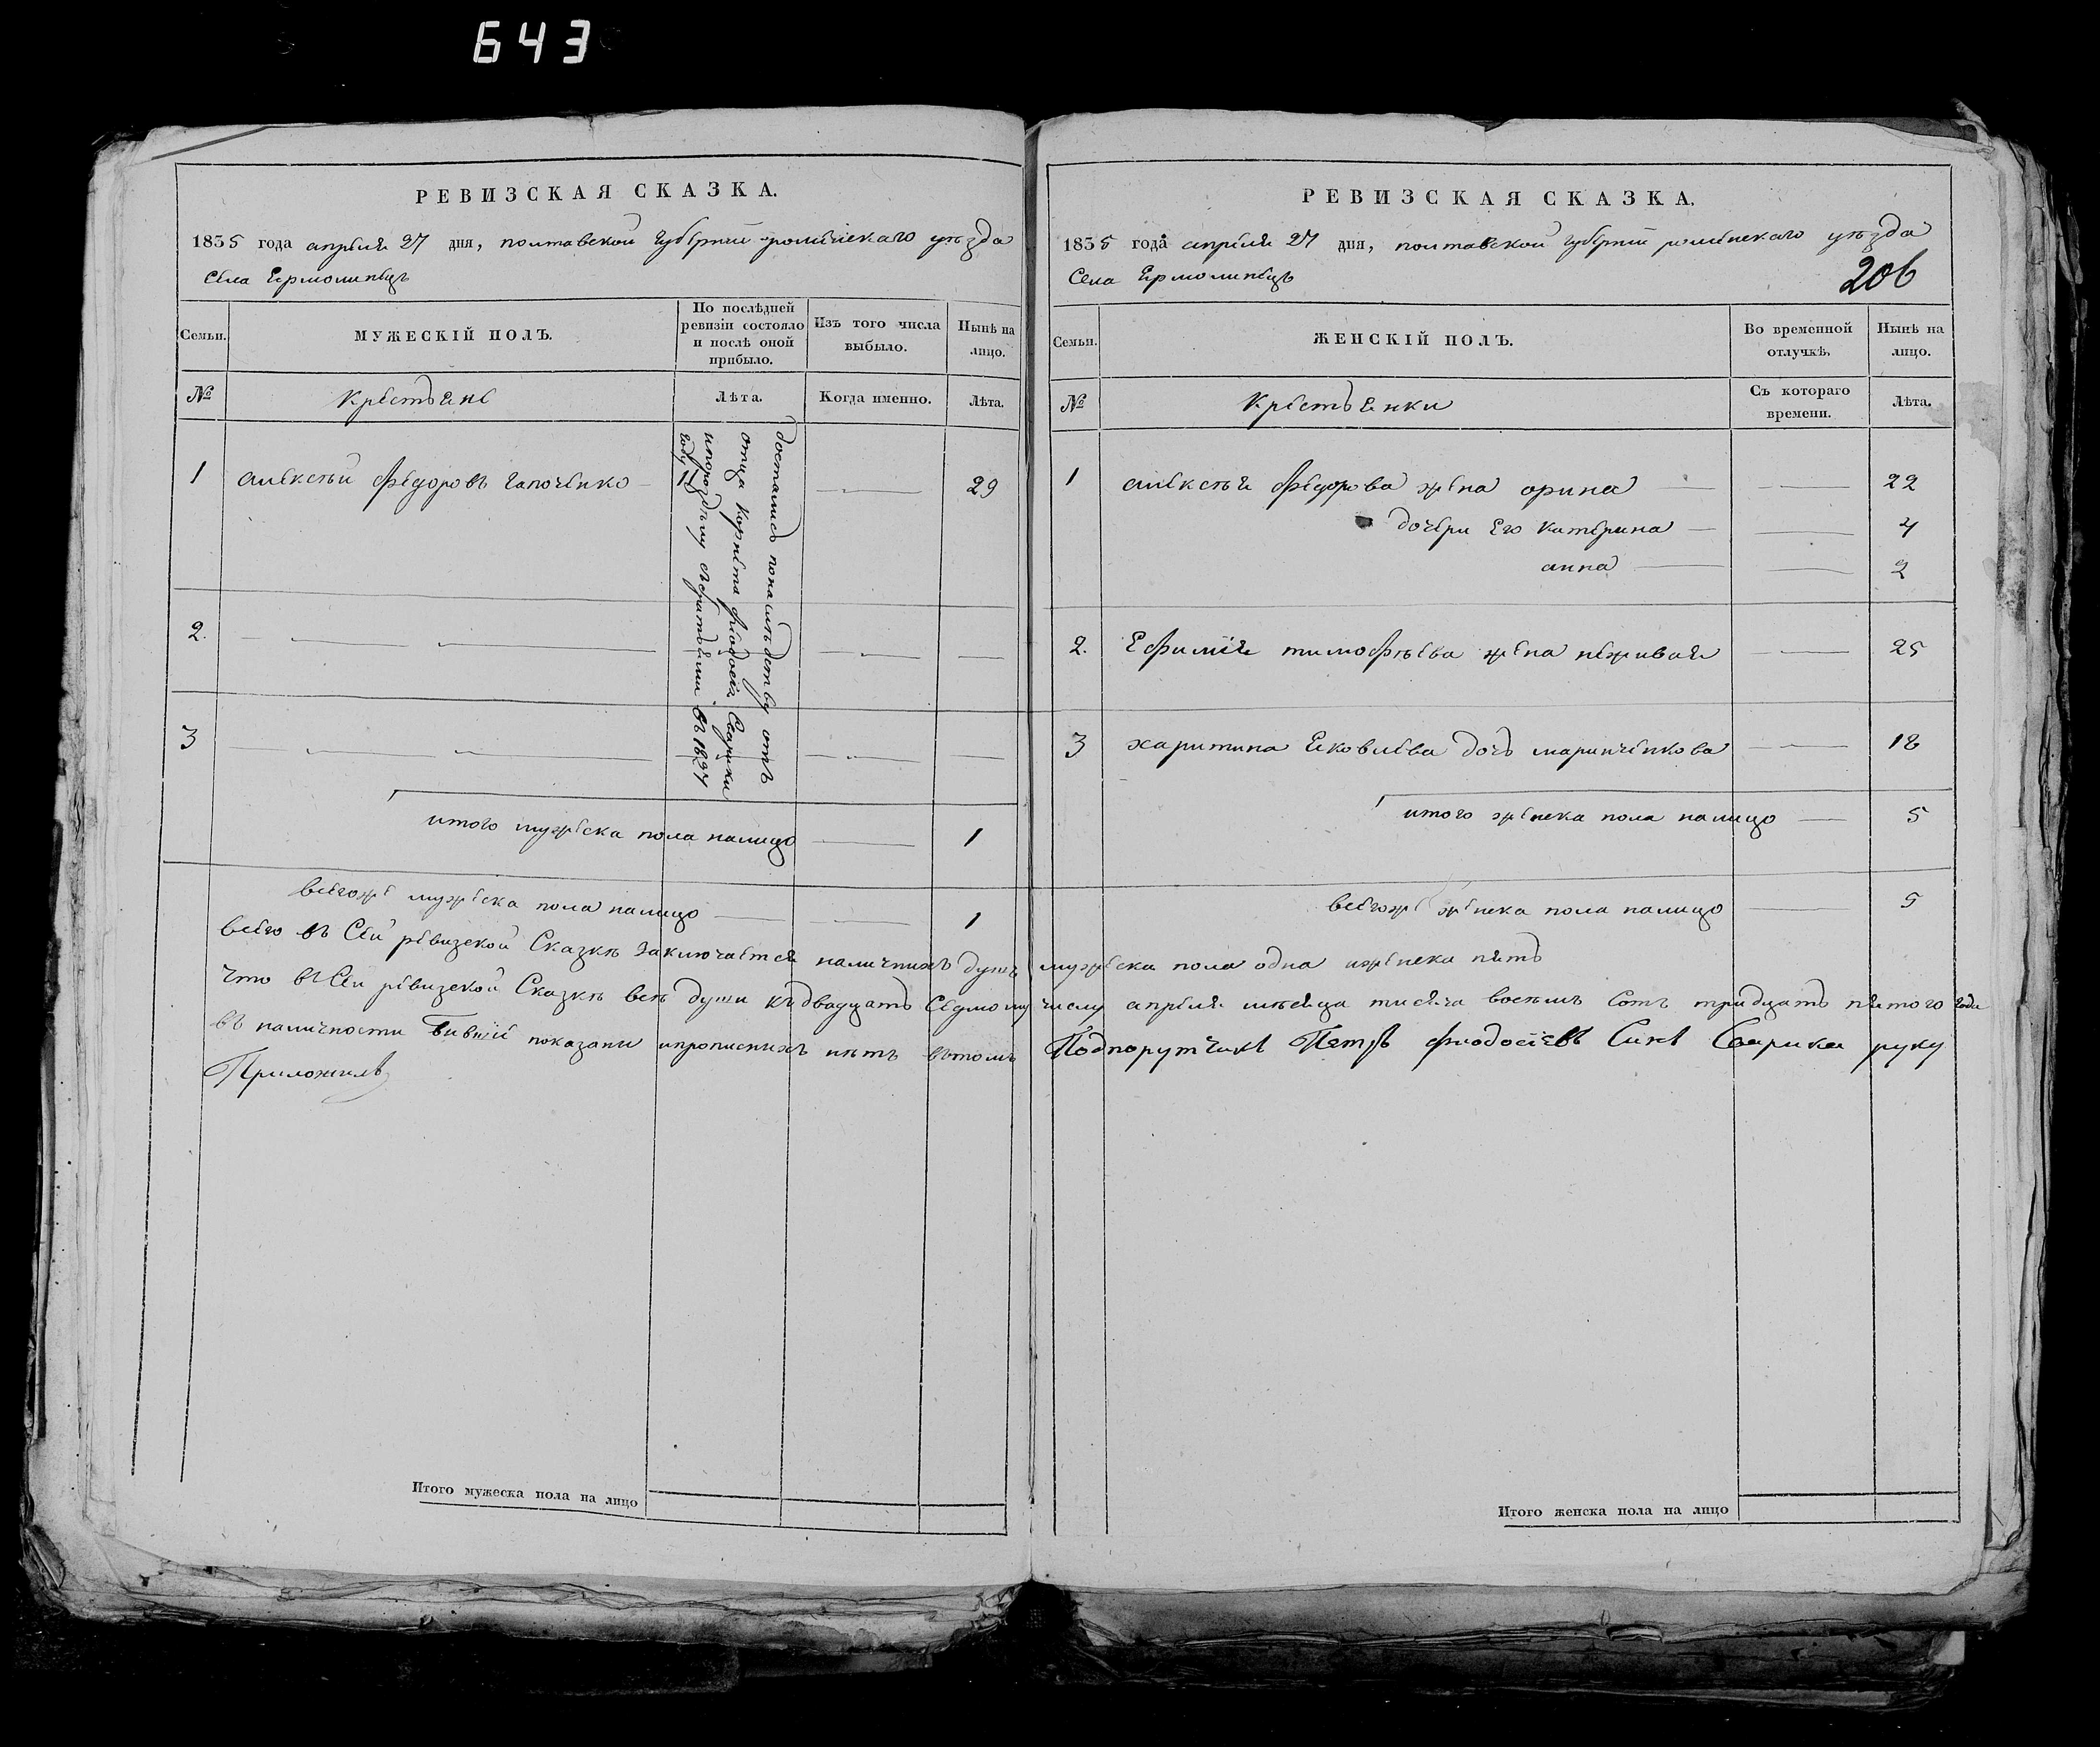 643
РЕВИЗСКАЯ СКАЗКА.
1835 года апреля 27 дня, полтавской губернии роменскаго уезда
Села Ермолинец
Семьи.
МУЖЕСКІЙ ПОЛЪ.
По послѣдней ревизіи состояло и послѣ оной прибыло.
Изъ того числа выбыло.
Нынѣ на лицо.
№
Крестьяне
Лѣта.
Когда именно.
Лѣта.
1 алексей Федоровъ гапоченко 29
досталис понаследству отъ
отца Корнета феодосия Сварики
ипоразделу збратьями въ 1827
году
2.
3
итого мужеска пола налицо 1
всегоже мужеска пола налицо 1
РЕВИЗСКАЯ СКАЗКА.
1835 года апреля 27 дня, полтавской губернии роменскаго уезда
Села Ермолинец
206
Семьи.
ЖЕНСКІЙ ПОЛЪ.
Во временной отлучкѣ.
Нынѣ на лицо.
№
Крестьянки
Съ котораго времени.
Лѣта.
1 алексея Федорова жена орина 22
дочери Его катерина 4
анна 2
2. Ефимия тимофеева жена неживая 25
3 харитина Яковлева доч маринченкова 18
итого женска пола налицо 5
всегоже женска пола налицо 5
всего въ Сей ревизской Сказкѣ заключается наличнихъ душъ мужеска пола одна иженска пять
Что въ Сей ревизской Сказкѣ все души къ двадцать Седмому числу апреля месяца тисяча восемъ Сотъ тридцать пятого года
въ наличности бившие показани ипрописнихъ нетъ вътомъ Подпорутчикъ Петръ феодосіевъ Синъ Сварика руку
Приложилъ
Итого мужеска пола на лицо
Итого женска пола на лицо